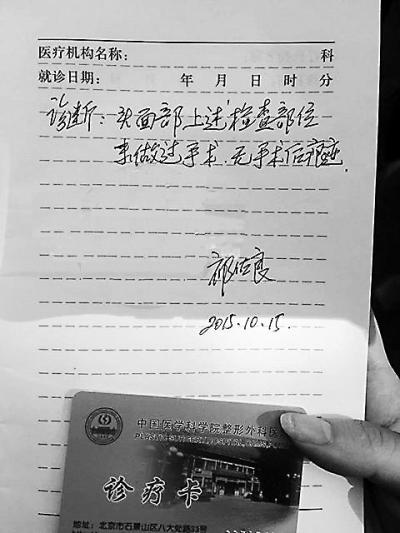 医疗机构名称： 科
就诊日期： 年 月 日 时 分
诊断：头面部上述检查部位
未做过手术、无手术后痕迹.
祁佐良
2015.10.15.
中国医学科学院整形外科医
PLASTIC SURGERY HOSPITAL
诊疗卡
地址：北京市石景山区八大处路33号